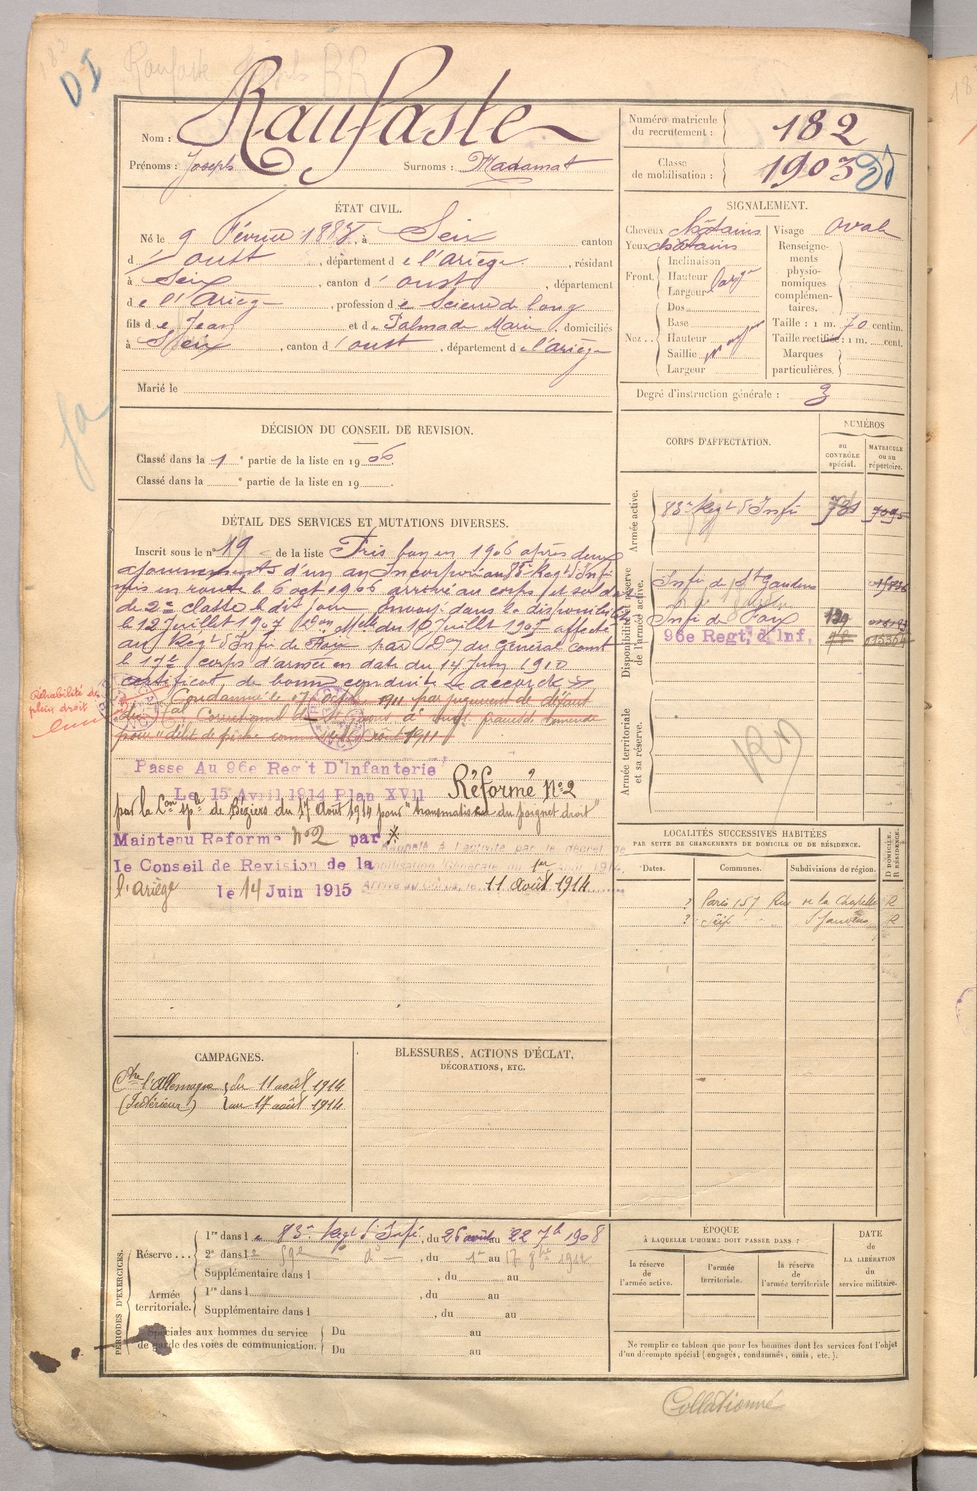 DI
Nom : Raufaste
Prénoms : Joseph Surnoms : Madamat
Numéro matricule du recrutement : 182
Classe de mobilisation : 1903
ÉTAT CIVIL.
Né le 9 Février 188 , à Seix canton
d' oust , département de l'ariège , résidant
à Seix , canton d' oust , département
de l'Ariège , profession de Scieur de long
fils de Jean et de Palmade Marie , domiciliés
à Seix , canton d' oust , département de l'ariège
Marié le
SIGNALEMENT.
Cheveux châtains
Yeux châtains
Front. Inclinaison
Hauteur
Largeur
Nez . . Dos
Base
Hauteur
Saillie
Largeur
moyen
Visage oval
Renseignements physionomiques complémentaires.
Taille : 1 m. 70 centim.
Taille rectifiée : 1 m. cent.
Marques particulières.
Degré d'instruction générale : 3
DÉCISION DU CONSEIL DE REVISION.
Classé dans la 1e partie de la liste en 1906
Classé dans la e partie de la liste en 19
CORPS D'AFFECTATION.
NUMÉROS
au CONTRÔLE spécial.
MATRICULE ou au répertoire.
Armée active.
83e Regt d'Infie
Disponibilité et réserve de l'armée active.
Infie de St Gaudens
Infie de Foix 129
96e Regt, d'Inf.
Armée territoriale et sa réserve.
DÉTAIL DES SERVICES ET MUTATIONS DIVERSES.
Inscrit sous le n° 19 de la liste Pris bon en 1906 après deux
ajournements d'un an Incorporé au 83e Regt d'Infie
mis en route le 6 oct 1906 arrivé au corps et soldat
de 2e classe le dit jour, envoyé dans la disponibilité
le 12 Juillet 1907 affecté
au Regt d'Infie de Foix par Don du général Comt
le 17e corps d'armée en date du 14 Juin 1910
certificat de bonne conduite accordé
Réhabilité de plein droit
Condamné le 17 1911 par jugement de défaut
Passé Au 96e Reg't D'Infanterie
Le 15 Avril 1914 Plan XVII Réformé N°2
par la Con sple de Béziers du 17 Août 1914 pour "traumatisme du poignet droit"
Maintenu Reforme N°2 par
le Conseil de Revision de la
l'Ariège le 14 Juin 1915
Rappelé à l'activité par le décret de
mobilisation Générale du 1er Août 1914.
Arrivé au Corps le 11 août 1914
LOCALITÉS SUCCESSIVES HABITÉES
PAR SUITE DE CHANGEMENTS DE DOMICILE OU DE RÉSIDENCE.
Dates. Communes. Subdivisions de région. D DOMICILE. R RÉSIDENCE.
? Paris 157 Rue de la Chapelle R
? Seix St Gaudens R
CAMPAGNES.
Ctre l'Allemagne du 11 août 1914
(Intérieur) au 17 août 1914
BLESSURES, ACTIONS D'ÉCLAT,
DÉCORATIONS, ETC.
PÉRIODES D'EXERCICES.
Réserve . . . 1re dans le 83e Regt d'Infie, du 26 août au 22 7b 1908
2e dans le 59e do , du 1er au 17 1912
Supplémentaire dans l , du au
Armée territoriale. 1re dans l , du au
Supplémentaire dans l , du au
Spéciales aux hommes du service de garde des voies de communication. Du au
Du au
ÉPOQUE
À LAQUELLE L'HOMME DOIT PASSER DANS :
la réserve de l'armée active.
l'armée territoriale.
la réserve de l'armée territoriale
DATE de LA LIBÉRATION du service militaire.
Ne remplir ce tableau que pour les hommes dont les services font l'objet
d'un décompte spécial (engagés, condamnés, omis, etc.).
Collationné